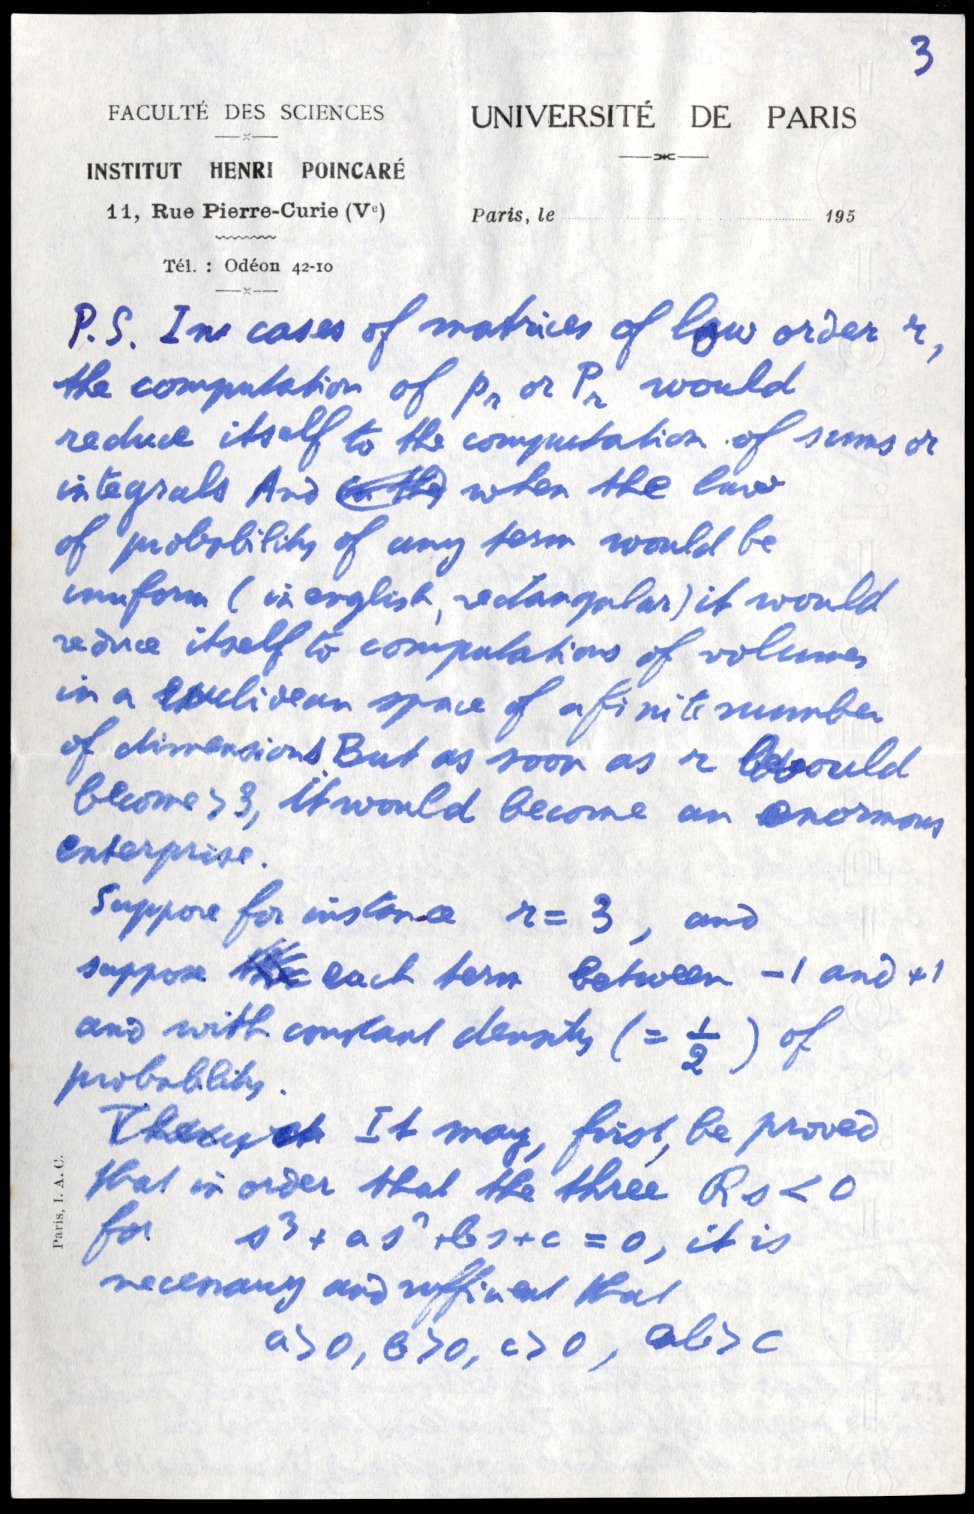 3
FACULTÉ DES SCIENCES
INSTITUT HENRI POINCARÉ
11, Rue Pierre-Curie (Vᵉ)
Tél. : Odéon 42-10
UNIVERSITÉ DE PARIS
Paris, le 195
P.S. In cases of matrices of low order r,
the computation of pᵣ or Pᵣ would
reduce itself to the computation of sums or
integrals And in the when the law
of probability of any term would be
uniform (in english, rectangular) it would
reduce itself to computations of volumes
in a euclidean space of a finite number
of dimensions But as soon as r would
become > 3, it would become an enormous
enterprise.
Suppose for instance r = 3, and
suppose each term between -1 and +1
and with constant density (= 1/2) of
probability.
It may, first, be proved
that in order that the three R s < 0
for s³ + as² + bs + c = 0, it is
necessary and sufficient that
a > 0, b > 0, c > 0, ab > c
Paris, I. A. C.